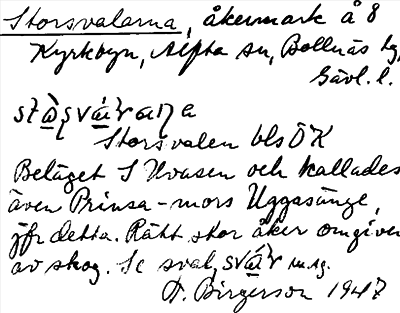 Storsvalarna, åkermark å 8
Kyrkbyn, Alfta sn, Bollnäs tg,
Gävl. l.
Storsvalen bls ÖK
Beläget S Uvasen och kallades
även Prinsa-mors Uggsänge,
jfr detta. Rätt stor åker omgiven
av skog. Se sval,
D. Birgerson 1947